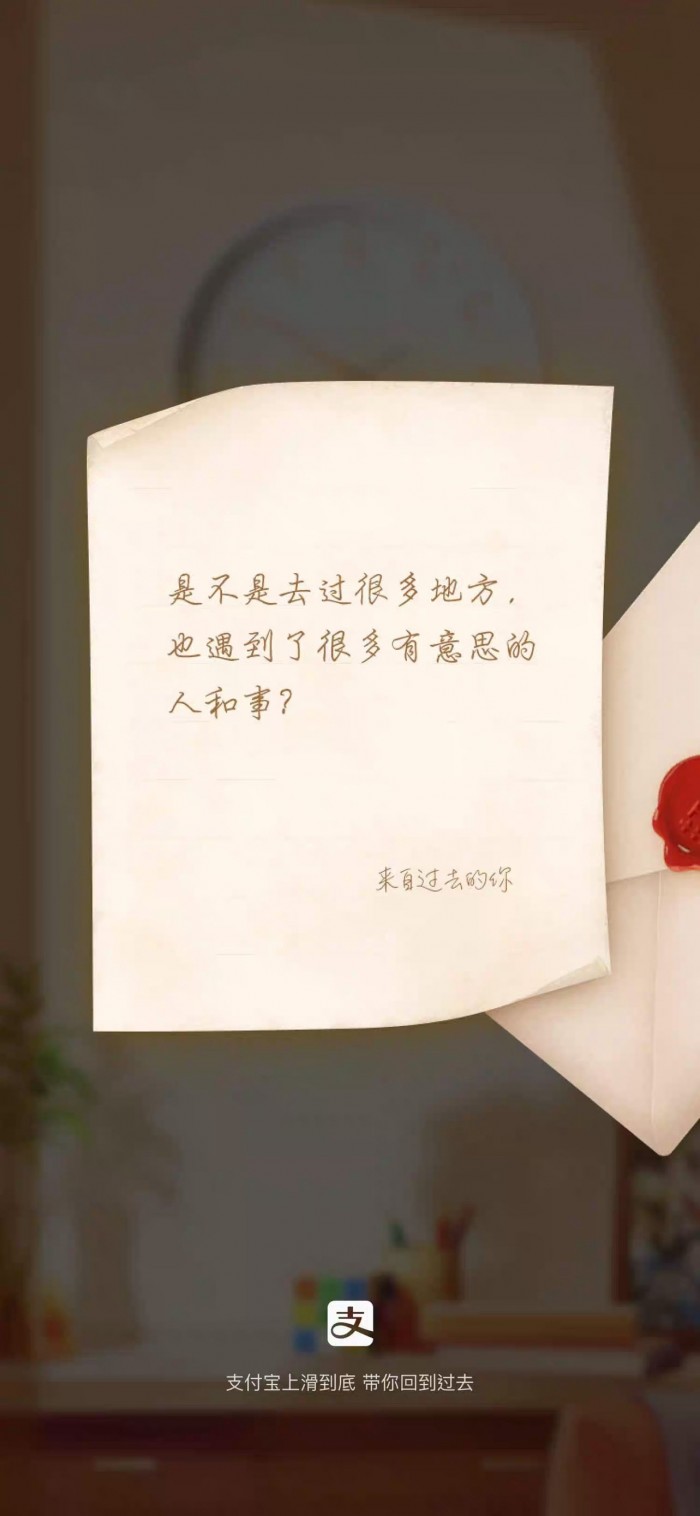 是不是去过很多地方，
也遇到了很多有意思的
人和事？
来自过去的你
支
支付宝上滑到底 带你回到过去